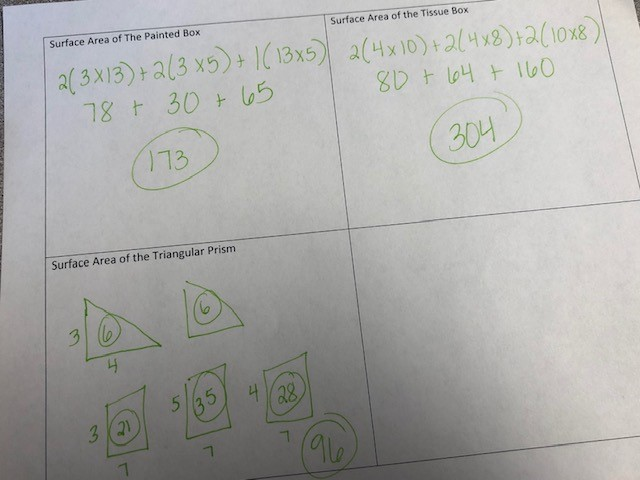 Surface Area of The Painted Box
2(3x13) + 2(3x5) + 1(13x5)
78 + 30 + 65
173
Surface Area of the Tissue Box
2(4x10) + 2(4x8) + 2(10x8)
80 + 64 + 160
304
Surface Area of the Triangular Prism
3 6
4
6
3 21
7
5 35
7
4 28
7
96